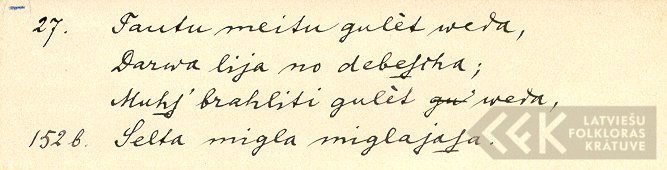 27. Tautu meitu gulèt weda,
Darwa lija no debescha;
Muhs' brahliti gulèt gu' weda,
152 b. Selta migla miglajasa.
LATVIEŠU
FOLKLORAS
KRĀTUVE